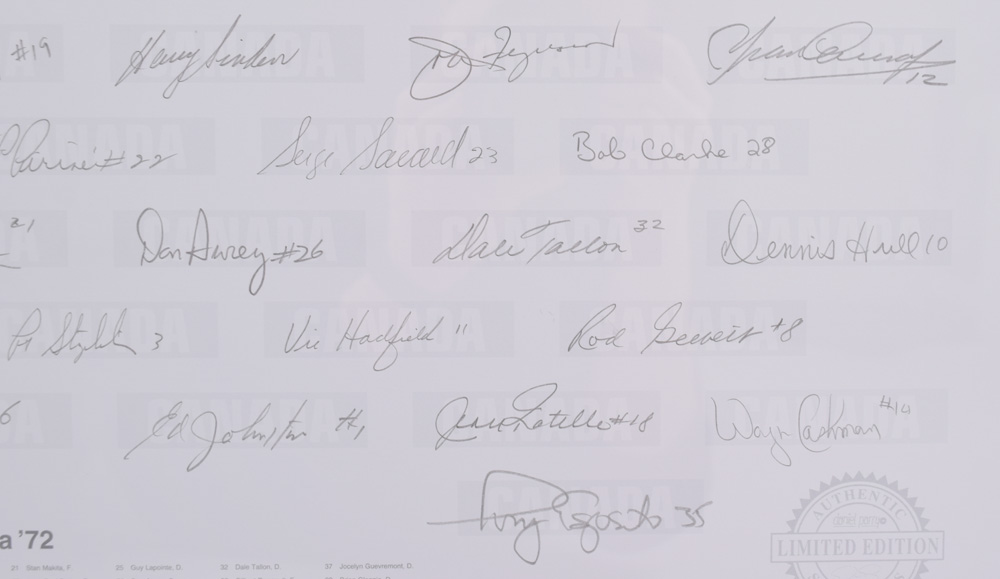 #19 Harry Sinden John Ferguson Yvan Cournoyer 12
#22 Serge Savard 23 Bob Clarke 28
21 Don Awrey #26 Dale Tallon 32 Dennis Hull 10
Pat Stapleton 3 Vic Hadfield 11 Rod Gilbert #8
6 Ed Johnston #1 Jean Ratelle #18 Wayne Cashman #14
Tony Esposito 35
AUTHENTIC
LIMITED EDITION
a '72
21 Stan Mikita, F. 25 Guy Lapointe, D. 32 Dale Tallon, D. 37 Jocelyn Guevremont, D.